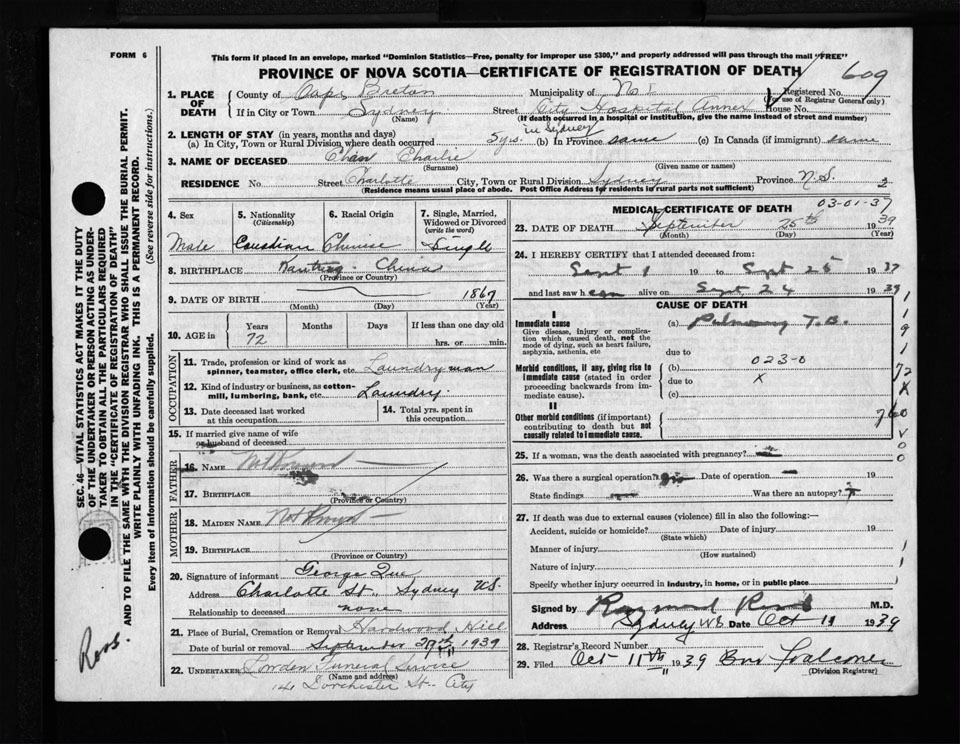 FORM 6
This form if placed in an envelope, marked "Dominion Statistics—Free, penalty for improper use $300," and properly addressed will pass through the mail "FREE"
PROVINCE OF NOVA SCOTIA—CERTIFICATE OF REGISTRATION OF DEATH
609
1. PLACE OF DEATH
County of Cape Breton Municipality of No. Registered No.
(For use of Registrar General only)
If in City or Town Sydney Street City Hospital Annex House No.
(Name) (If death occurred in a hospital or institution, give the name instead of street and number)
2. LENGTH OF STAY (in years, months and days) in Sydney
(a) In City, Town or Rural Division where death occurred 5 yrs. (b) In Province same (c) In Canada (if immigrant) same
3. NAME OF DECEASED Chan Charlie
(Surname) (Given name or names)
RESIDENCE No. Street Charlotte City, Town or Rural Division Sydney Province N.S. 2
(Residence means usual place of abode. Post Office Address for residents in rural parts not sufficient)
4. Sex
5. Nationality (Citizenship)
6. Racial Origin
7. Single, Married, Widowed or Divorced (write the word)
Male Canadian Chinese Single
8. BIRTHPLACE China
(Province or Country)
9. DATE OF BIRTH 1867
(Month) (Day) (Year)
10. AGE in Years Months Days If less than one day old
72 hrs. or min.
OCCUPATION
11. Trade, profession or kind of work as spinner, teamster, office clerk, etc. Laundryman
12. Kind of industry or business, as cotton-mill, lumbering, bank, etc. Laundry
13. Date deceased last worked at this occupation
14. Total yrs. spent in this occupation
15. If married give name of wife or husband of deceased
FATHER
16. NAME Not Known
17. BIRTHPLACE
(Province or Country)
MOTHER
18. MAIDEN NAME Not Known
19. BIRTHPLACE
(Province or Country)
20. Signature of informant George Que
Address Charlotte St., Sydney NS.
Relationship to deceased none
21. Place of Burial, Cremation or Removal Hardwood Hill
Date of burial or removal September 29th 1939
22. UNDERTAKER Funeral Service
(Name and address)
Dorchester St. City
MEDICAL CERTIFICATE OF DEATH 03-01-37
23. DATE OF DEATH September 25th 1939
(Month) (Day) (Year)
24. I HEREBY CERTIFY that I attended deceased from:
Sept 1 19 to Sept 25 1937
and last saw h alive on Sept. 24 1939
CAUSE OF DEATH
I
Immediate cause
Give disease, injury or complication which caused death, not the mode of dying, such as heart failure, asphyxia, asthenia, etc
(a) Pulmonary T.B.
due to
023-0
Morbid conditions, if any, giving rise to immediate cause (stated in order proceeding backwards from immediate cause).
(b)
due to X
(c)
II
Other morbid conditions (if important) contributing to death but not causally related to immediate cause.
25. If a woman, was the death associated with pregnancy?
26. Was there a surgical operation? Date of operation 19
State findings Was there an autopsy?
27. If death was due to external causes (violence) fill in also the following:—
Accident, suicide or homicide? Date of injury 19
(State which)
Manner of injury
(How sustained)
Nature of injury
Specify whether injury occurred in industry, in home, or in public place
Signed by Raymond M.D.
Address Sydney NS Date Oct 11 1939
28. Registrar's Record Number
29. Filed Oct 11th 1939
(Division Registrar)
SEC. 46—VITAL STATISTICS ACT MAKES IT THE DUTY
OF THE UNDERTAKER OR PERSON ACTING AS UNDER-
TAKER TO OBTAIN ALL THE PARTICULARS REQUIRED
IN THE "CERTIFICATE OF REGISTRATION OF DEATH"
AND TO FILE THE SAME WITH THE DIVISION REGISTRAR WHO SHALL ISSUE THE BURIAL PERMIT.
WRITE PLAINLY WITH UNFADING INK. THIS IS A PERMANENT RECORD.
Every item of information should be carefully supplied. (See reverse side for instructions.)